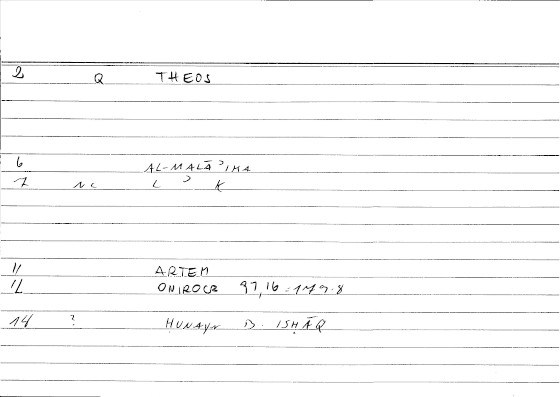 2 Q THEOS
6 AL-MALĀʾIKA
7 NC L ʾ K
11 ARTEM
12 ONIROCR 97,16 = 179.8
14 ? ḤUNAYN B. ISḤĀQ